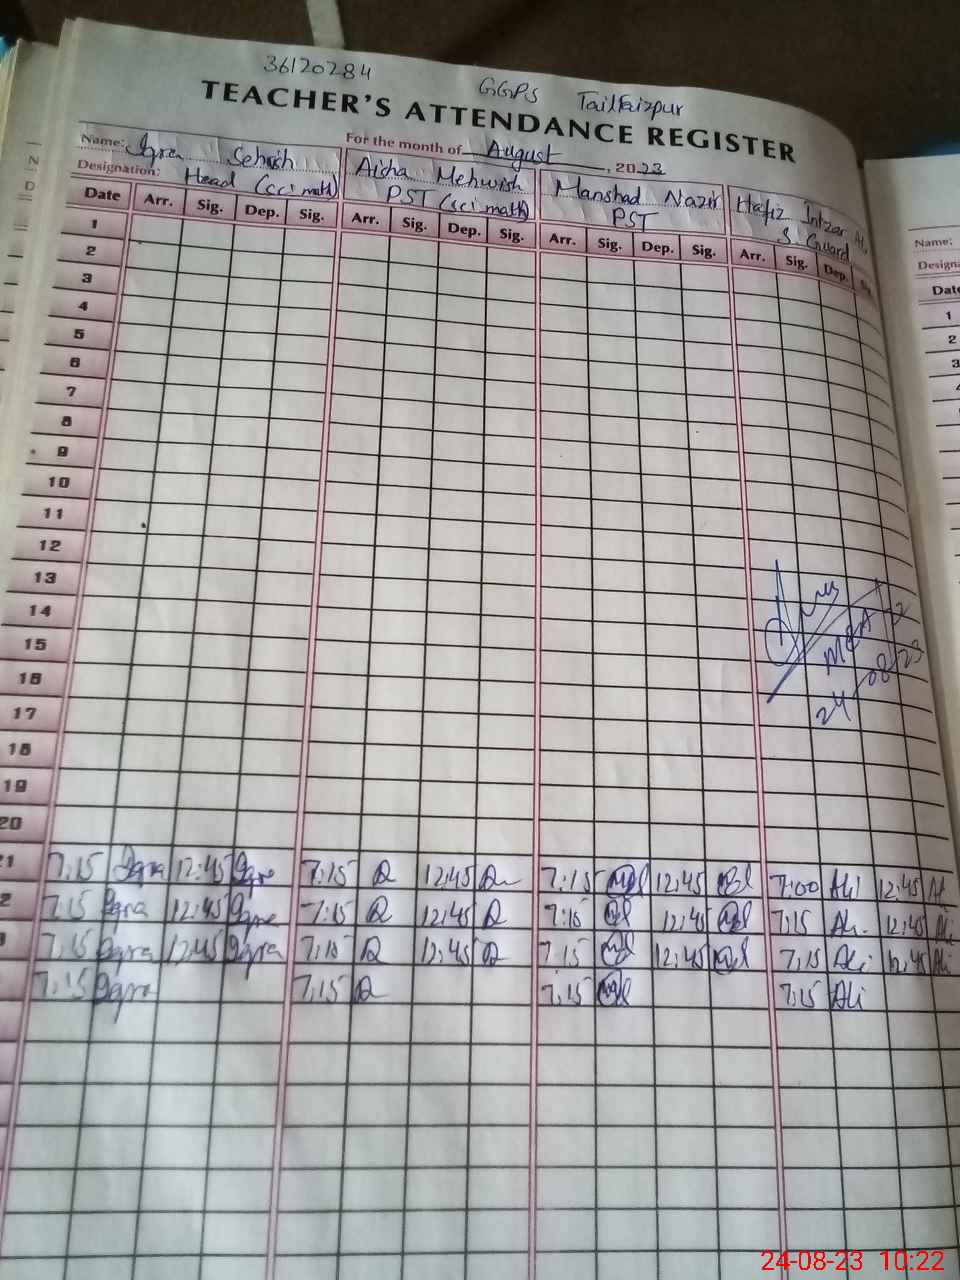 36120284
GGPS Tailfaizpur
TEACHER'S ATTENDANCE REGISTER
For the month of August, 2023
Name: Iqra Sehrish
Aisha Mehwish
Manshad Nazir
Hafiz Intzar Ali
Designation: Head (sci math)
PST (sci math)
PST
S. Guard
Date Arr. Sig. Dep. Sig. Arr. Sig. Dep. Sig. Arr. Sig. Dep. Sig. Arr. Sig. Dep.
1
2
3
4
5
6
7
8
9
10
11
12
13
14
15
16
17
18
19
20
1 7:15 Iqra 12:45 Iqra 7:15 12:45 7:15 12:45 7:00 Ali 12:45 Ali
2 7:15 Iqra 12:45 Iqra 7:15 12:45 7:15 12:45 7:15 Ali 12:45 Ali
7:15 Iqra 12:45 Iqra 7:15 12:45 7:15 12:45 7:15 Ali 12:45 Ali
7:15 Iqra 7:15 7:15 7:15 Ali
MEA
24/08/23
Name:
Designa
Date
1
2
3
24-08-23 10:22